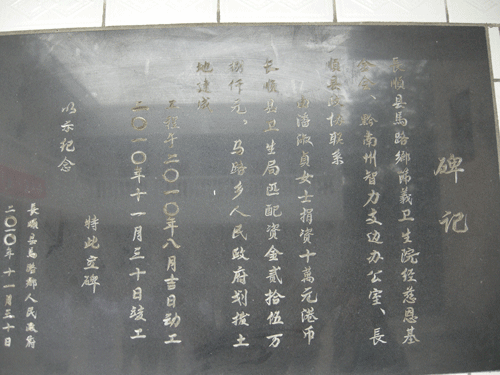 碑记
長順县馬路鄉節義卫生院经慈恩基
金会、黔南州智力支边办公室、長
順县政协联系
由潘淑貞女士捐资十萬元港币
长順县卫生局匹配资金貳拾伍万
捌仟元。马路乡人民政府划拨土
地建成
二〇一〇年八月吉日动工
二〇一〇年十一月三十日竣工
特此立碑
以示纪念
長順县馬路鄉人民政府
二〇一〇年十一月三十日